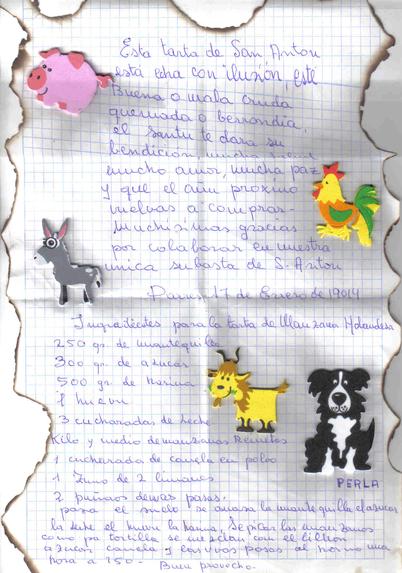 Esta tarta de San Anton
está echa con ilusión, este
Buena o mala cruda
quemada o berrionda,
el Santu te dara su
bendición, mucha salud
mucho amor, mucha paz
y que el añu proximo
vuelvas a comprar-
Muchisimas gracias
por colaborar en nuestra
unica subasta de S. Anton
17 de Enero de
Ingredientes para la tarta de Manzana Holandesa
250 gr. de mantequilla
300 gr. de azucar
500 gr. de harina
1 huevu
3 cucharadas de leche
Kilo y medio de manzanas Reinetas
1 cucharada de canela en polvo
1 Zumo de 2 limones
2 puñaos de uvas pasas.
PERLA
para el suelo se amasa la mantequilla el azucar
la leche el huevu la harina, Se pican las manzanas
como pa tortilla se mezclan con el limon
azucar canela y las uvas pasas al horno una
hora a 150-
Buen provecho.